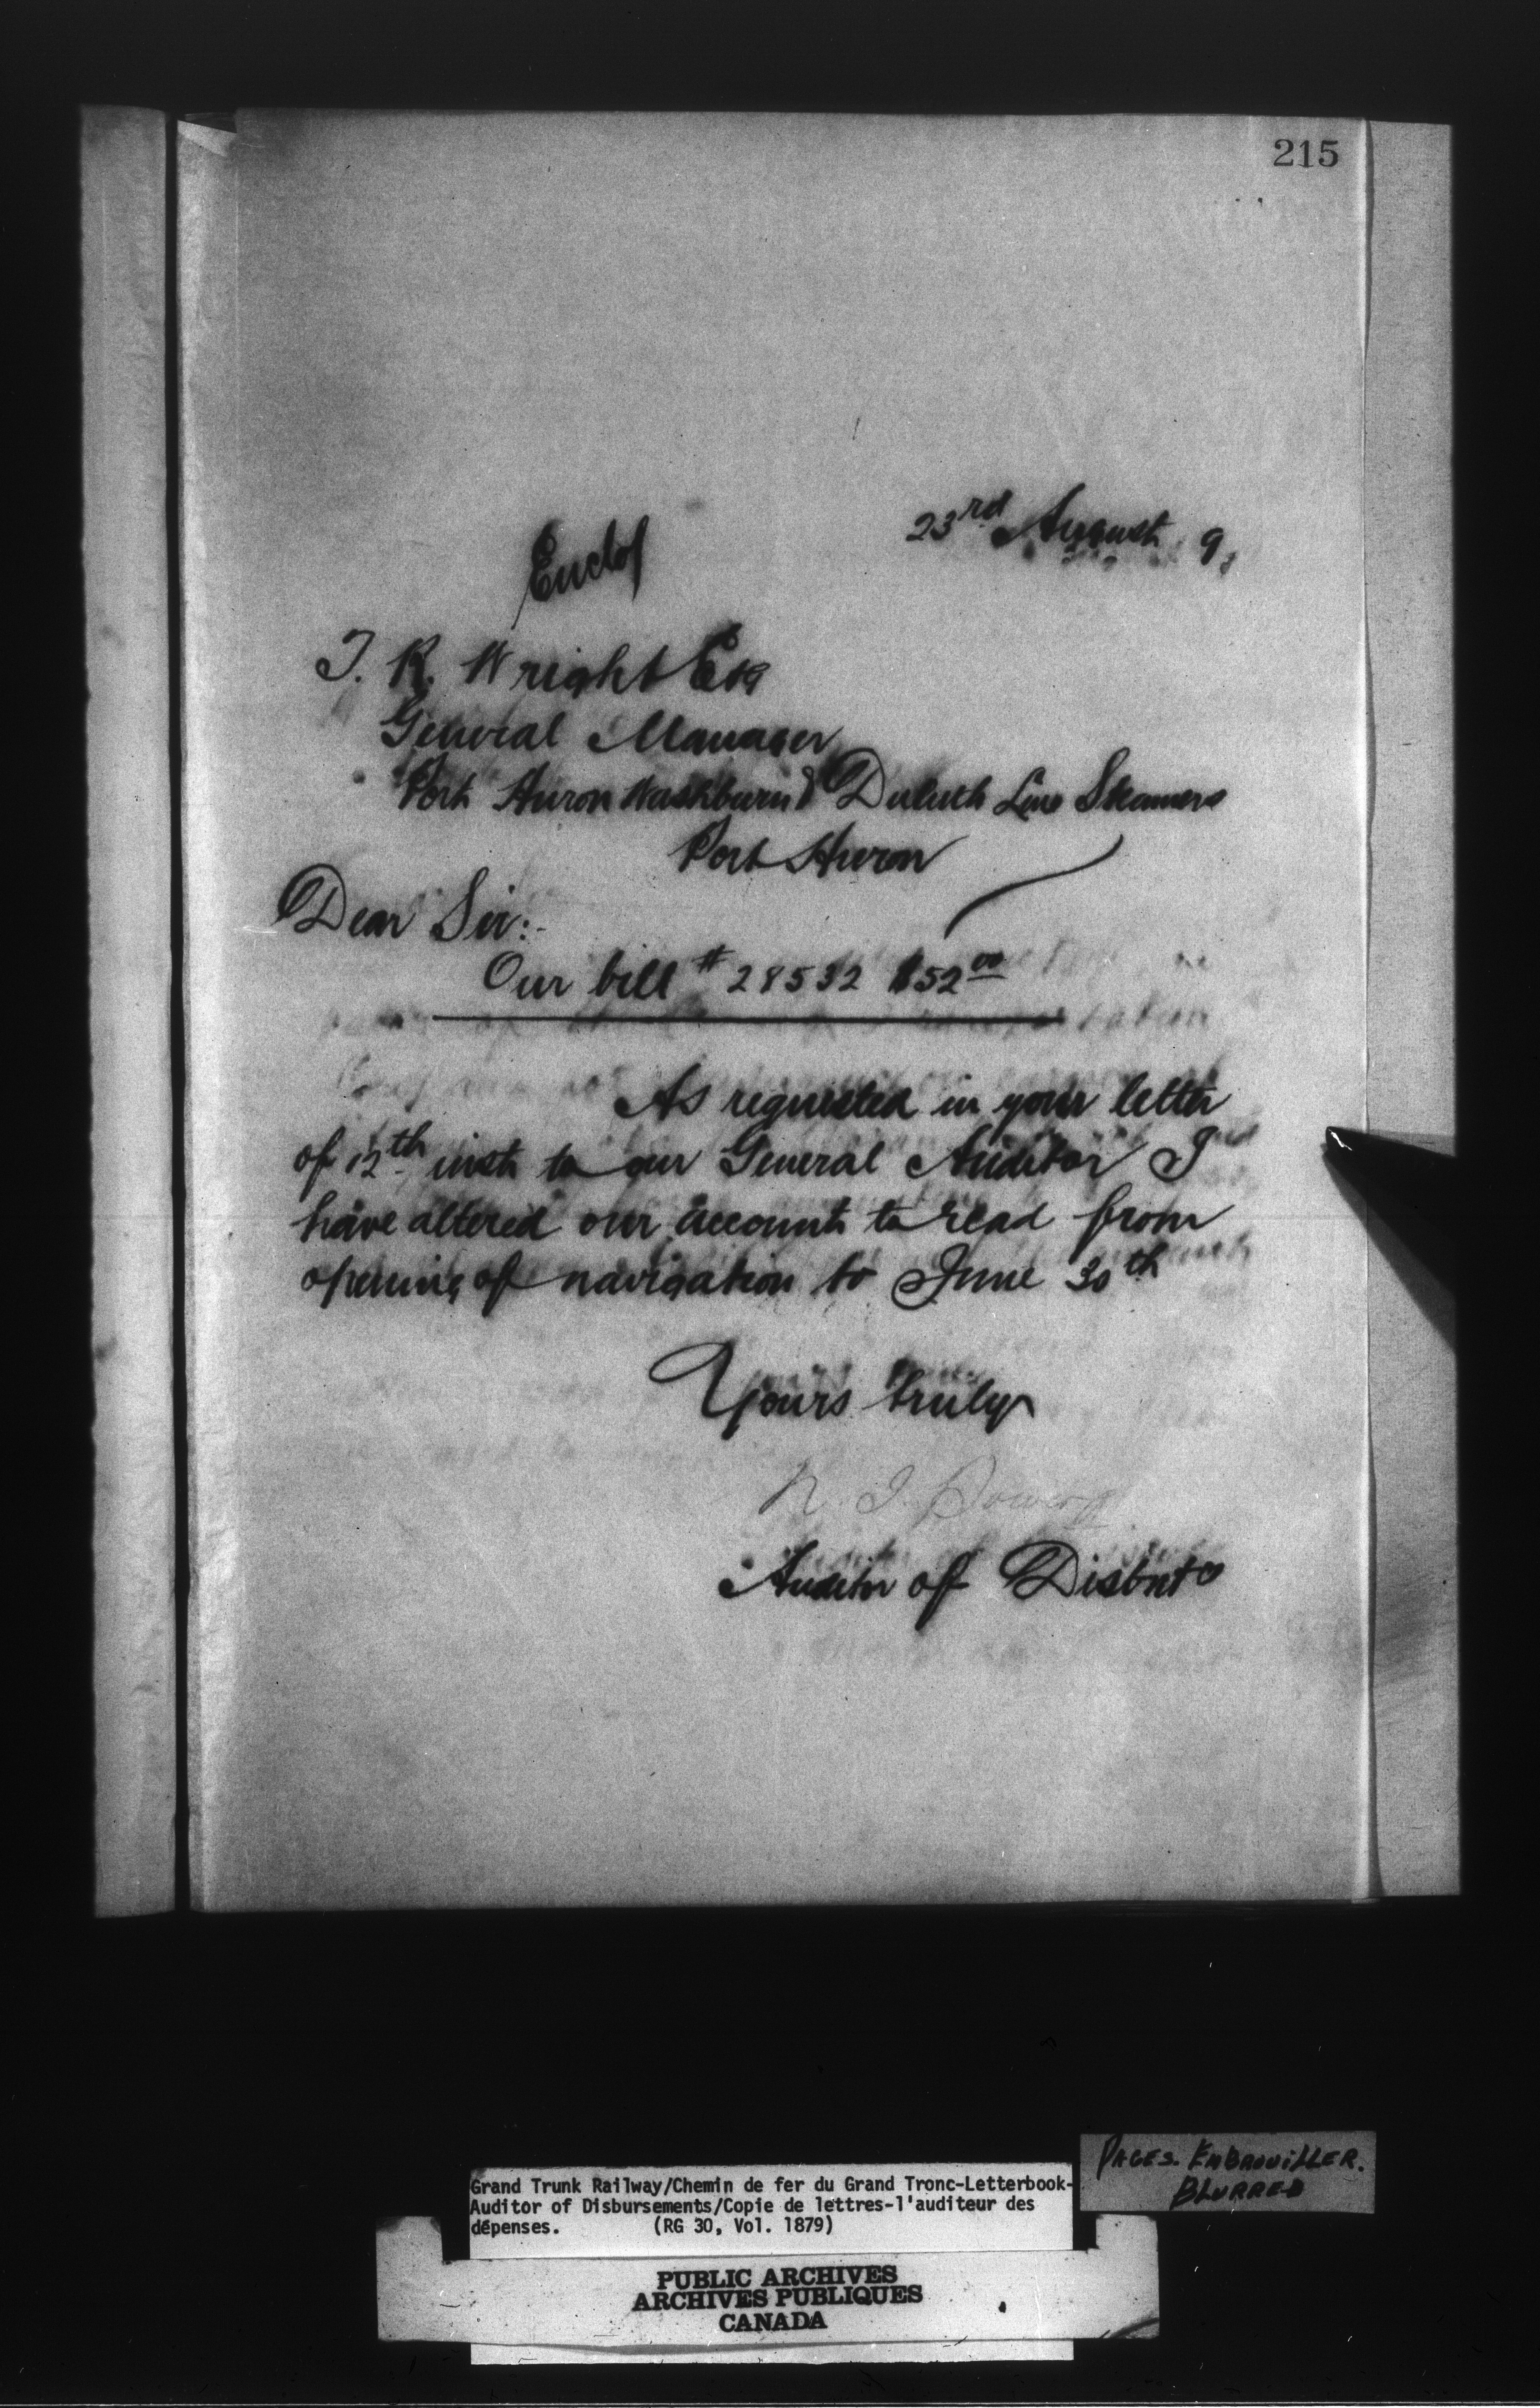 215
23rd August 9
Enclos
T. R. Wright Esq
General Manager
Port Huron Washburn & Duluth Line Steamers
Port Huron
Dear Sir:-
Our bill # 28532 $52 00
As requested in your letter
of 12th inst to our General Auditor I
have altered our account to read from
opening of navigation to June 30th
Yours truly
Auditor of Disbnts
Grand Trunk Railway/Chemin de fer du Grand Tronc-Letterbook-
Auditor of Disbursements/Copie de lettres-l'auditeur des
dépenses. (RG 30, Vol. 1879)
PAGES. EMBROUILLER.
BLURRED
PUBLIC ARCHIVES
ARCHIVES PUBLIQUES
CANADA